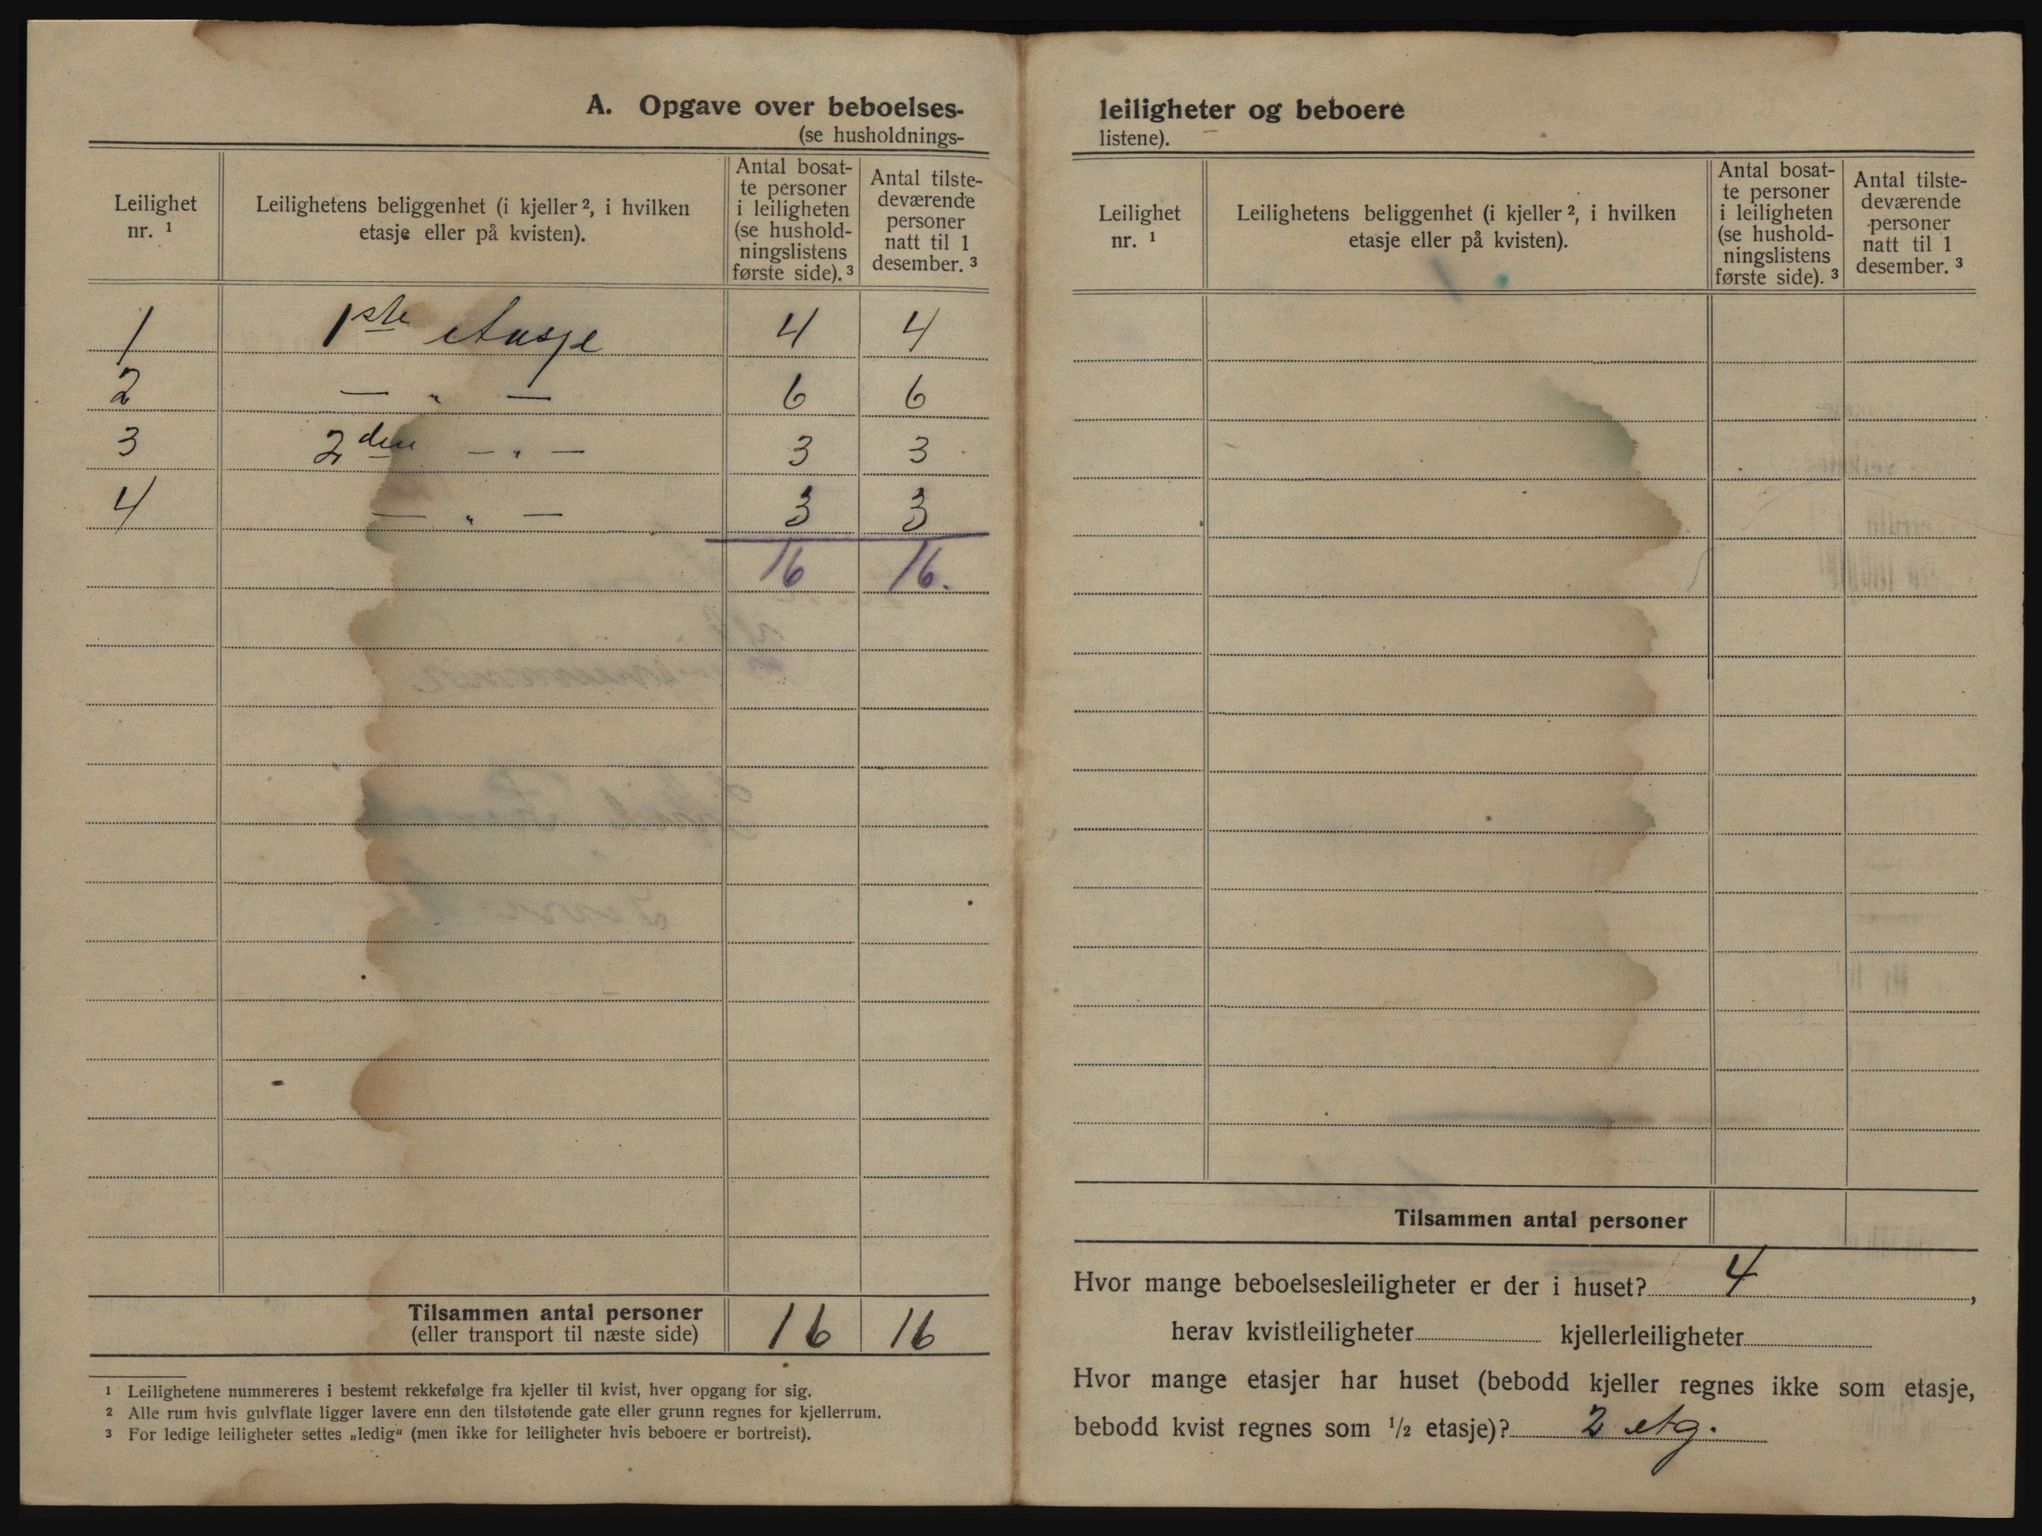 A. Opgave over beboelses-
(se husholdnings-
Leilighet
nr. ¹
Leilighetens beliggenhet (i kjeller ², i hvilken
etasje eller på kvisten).
Antal bosat-
te personer
i leiligheten
(se hushold-
ningslistens
første side). ³
Antal tilste-
deværende
personer
natt til 1
desember. ³
1 1ste etasje 4 4
2 — „ — 6 6
3 2den — „ — 3 3
4 — „ — 3 3
16 16.
Tilsammen antal personer 16 16
(eller transport til næste side)
¹ Leilighetene nummereres i bestemt rekkefølge fra kjeller til kvist, hver opgang for sig.
² Alle rum hvis gulvflate ligger lavere enn den tilstøtende gate eller grunn regnes for kjellerrum.
³ For ledige leiligheter settes „ledig“ (men ikke for leiligheter hvis beboere er bortreist).
leiligheter og beboere
listene).
Leilighet
nr. ¹
Leilighetens beliggenhet (i kjeller ², i hvilken
etasje eller på kvisten).
Antal bosat-
te personer
i leiligheten
(se hushold-
ningslistens
første side). ³
Antal tilste-
deværende
personer
natt til 1
desember. ³
Tilsammen antal personer
Hvor mange beboelsesleiligheter er der i huset? 4,
herav kvistleiligheter kjellerleiligheter
Hvor mange etasjer har huset (bebodd kjeller regnes ikke som etasje,
bebodd kvist regnes som ¹/₂ etasje)? 2 etg.